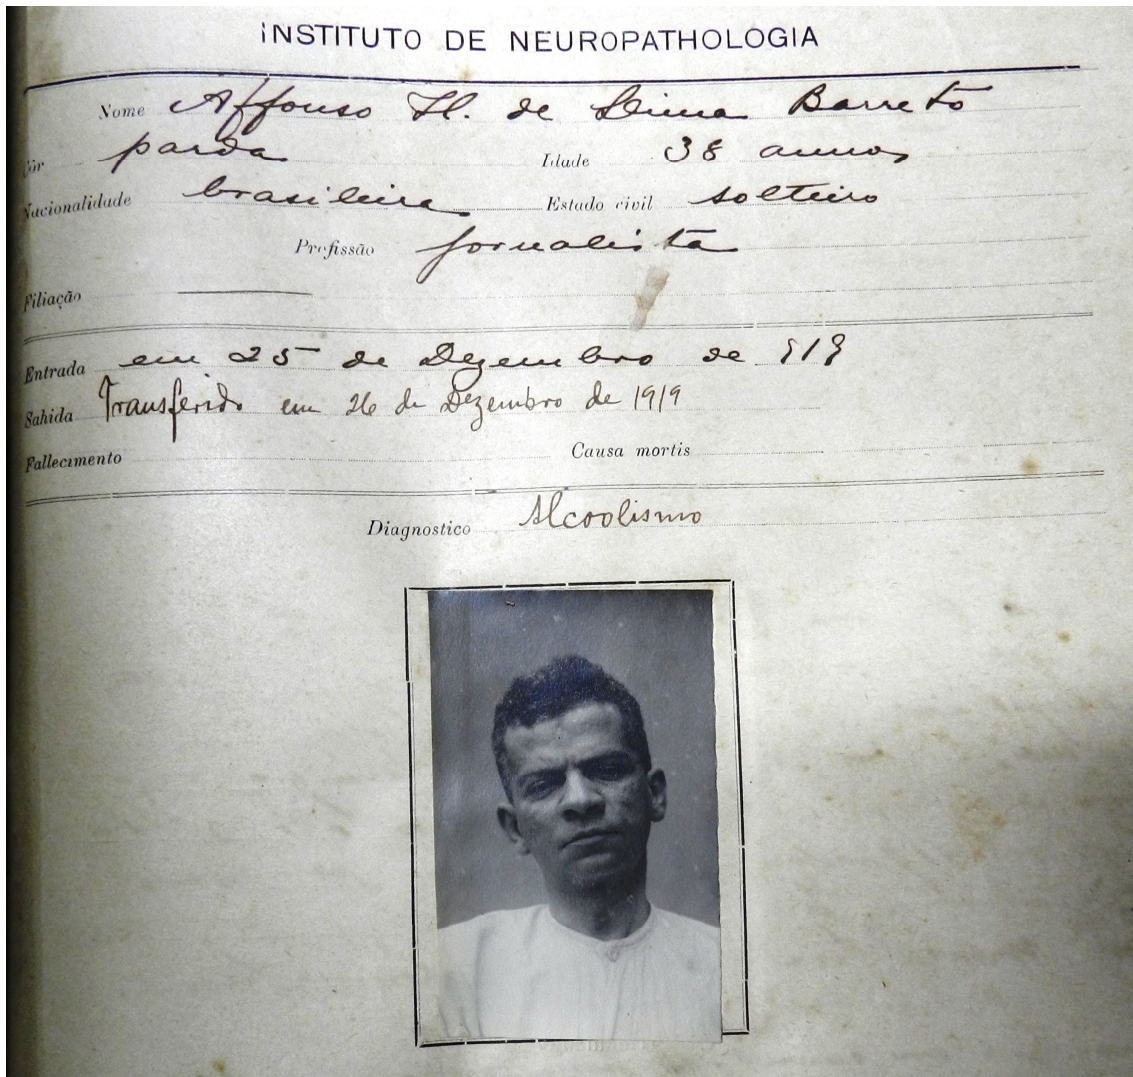 INSTITUTO DE NEUROPATHOLOGIA
Nome Affonso H. de Lima Barreto
Côr parda Idade 38 annos
Nacionalidade brasileira Estado civil solteiro
Profissão jornalista
Filiação
Entrada em 25 de Dezembro de 919
Sahida Transferido em 26 de Dezembro de 1919
Fallecimento Causa mortis
Diagnostico Alcoolismo